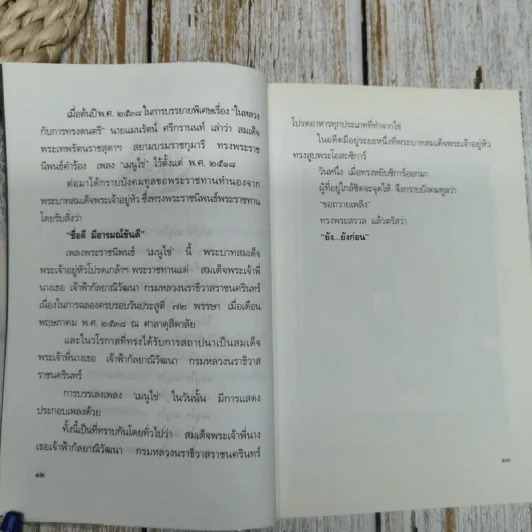 เมื่อต้นปี พ.ศ. ๒๕๓๘ ในการบรรยายพิเศษเรื่อง "ในหลวง
กับการทรงดนตรี" นายแมนรัตน์ ศรีกรานนท์ เล่าว่า สมเด็จ
พระเทพรัตนราชสุดาฯ สยามบรมราชกุมารี ทรงพระราช
นิพนธ์คำร้อง เพลง 'เมนูไข่' ไว้ตั้งแต่ พ.ศ. ๒๕๑๘
ต่อมาได้กราบบังคมทูลขอพระราชทานทำนองจาก
พระบาทสมเด็จพระเจ้าอยู่หัว ซึ่งทรงพระราชนิพนธ์พระราชทาน
โดยรับสั่งว่า
"ชื่อดี มีอารมณ์ขันดี"
เพลงพระราชนิพนธ์ 'เมนูไข่' นี้ พระบาทสมเด็จ
พระเจ้าอยู่หัวโปรดเกล้าฯ พระราชทานแด่ สมเด็จพระเจ้าพี่
นางเธอ เจ้าฟ้ากัลยาณิวัฒนา กรมหลวงนราธิวาสราชนครินทร์
เนื่องในการฉลองครบรอบวันประสูติ ๗๒ พรรษา เมื่อเดือน
พฤษภาคม พ.ศ. ๒๕๓๘ ณ ศาลาดุสิดาลัย
และในวโรกาสที่ทรงได้รับการสถาปนาเป็นสมเด็จ
พระเจ้าพี่นางเธอ เจ้าฟ้ากัลยาณิวัฒนา กรมหลวงนราธิวาส
ราชนครินทร์
การบรรเลงเพลง 'เมนูไข่' ในวันนั้น มีการแสดง
ประกอบเพลงด้วย
ทั้งนี้เป็นที่ทราบกันโดยทั่วไปว่า สมเด็จพระเจ้าพี่นาง
เธอเจ้าฟ้ากัลยาณิวัฒนา กรมหลวงนราธิวาสราชนครินทร์
๑๒
โปรดอาหารทุกประเภทที่ทำจากไข่
ในอดีตมีอยู่ระยะหนึ่งที่พระบาทสมเด็จพระเจ้าอยู่หัว
ทรงสูบพระโอสถซิการ์
วันหนึ่ง เมื่อทรงหยิบซิการ์ออกมา
ผู้ที่อยู่ใกล้ชิดจะจุดให้ จึงกราบบังคมทูลว่า
"ขอถวายเพลิง"
ทรงพระสรวล แล้วตรัสว่า
"ยัง...ยังก่อน"
๑๓